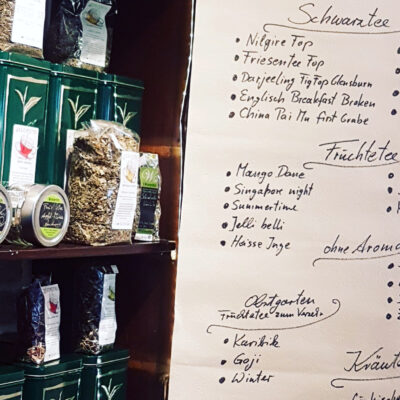 Schwarztee
• Nilgire Top
• Friesentee Top
• Darjeeling TigTop Glenburn
• Englisch Breakfast Broken
• China Pai Mu first Grabe
Früchtetee
• Mango Dane
• Singapor night
• Summertime
• Jelli belli
• Haisse Inge
ohne Aroma
Obstgarten
Früchtetee zum
• Karibik
• Goji
• Winter
Kräut